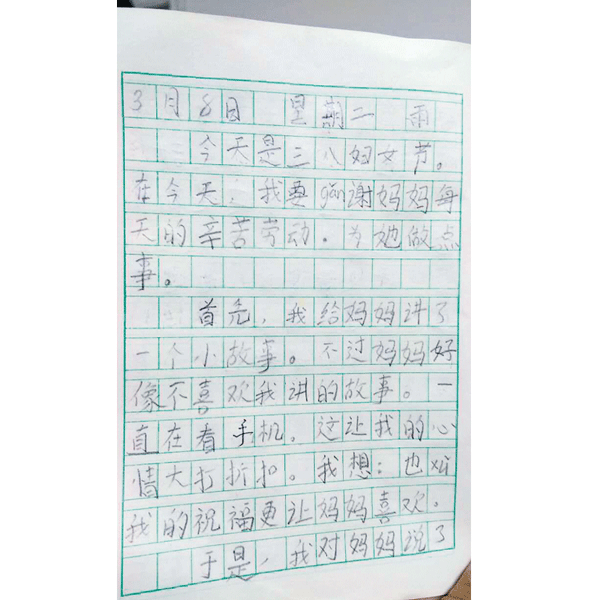 3月8日 星期二 雨
今天是三八妇女节。
在今天,我要gǎn谢妈妈每
天的辛苦劳动。为她做点
事。
首先,我给妈妈讲了
一个小故事。不过妈妈好
像不喜欢我讲的故事。一
直在看手机。这让我的心
情大打折扣。我想:也许
我的祝福更让妈妈喜欢。
于是,我对妈妈说了